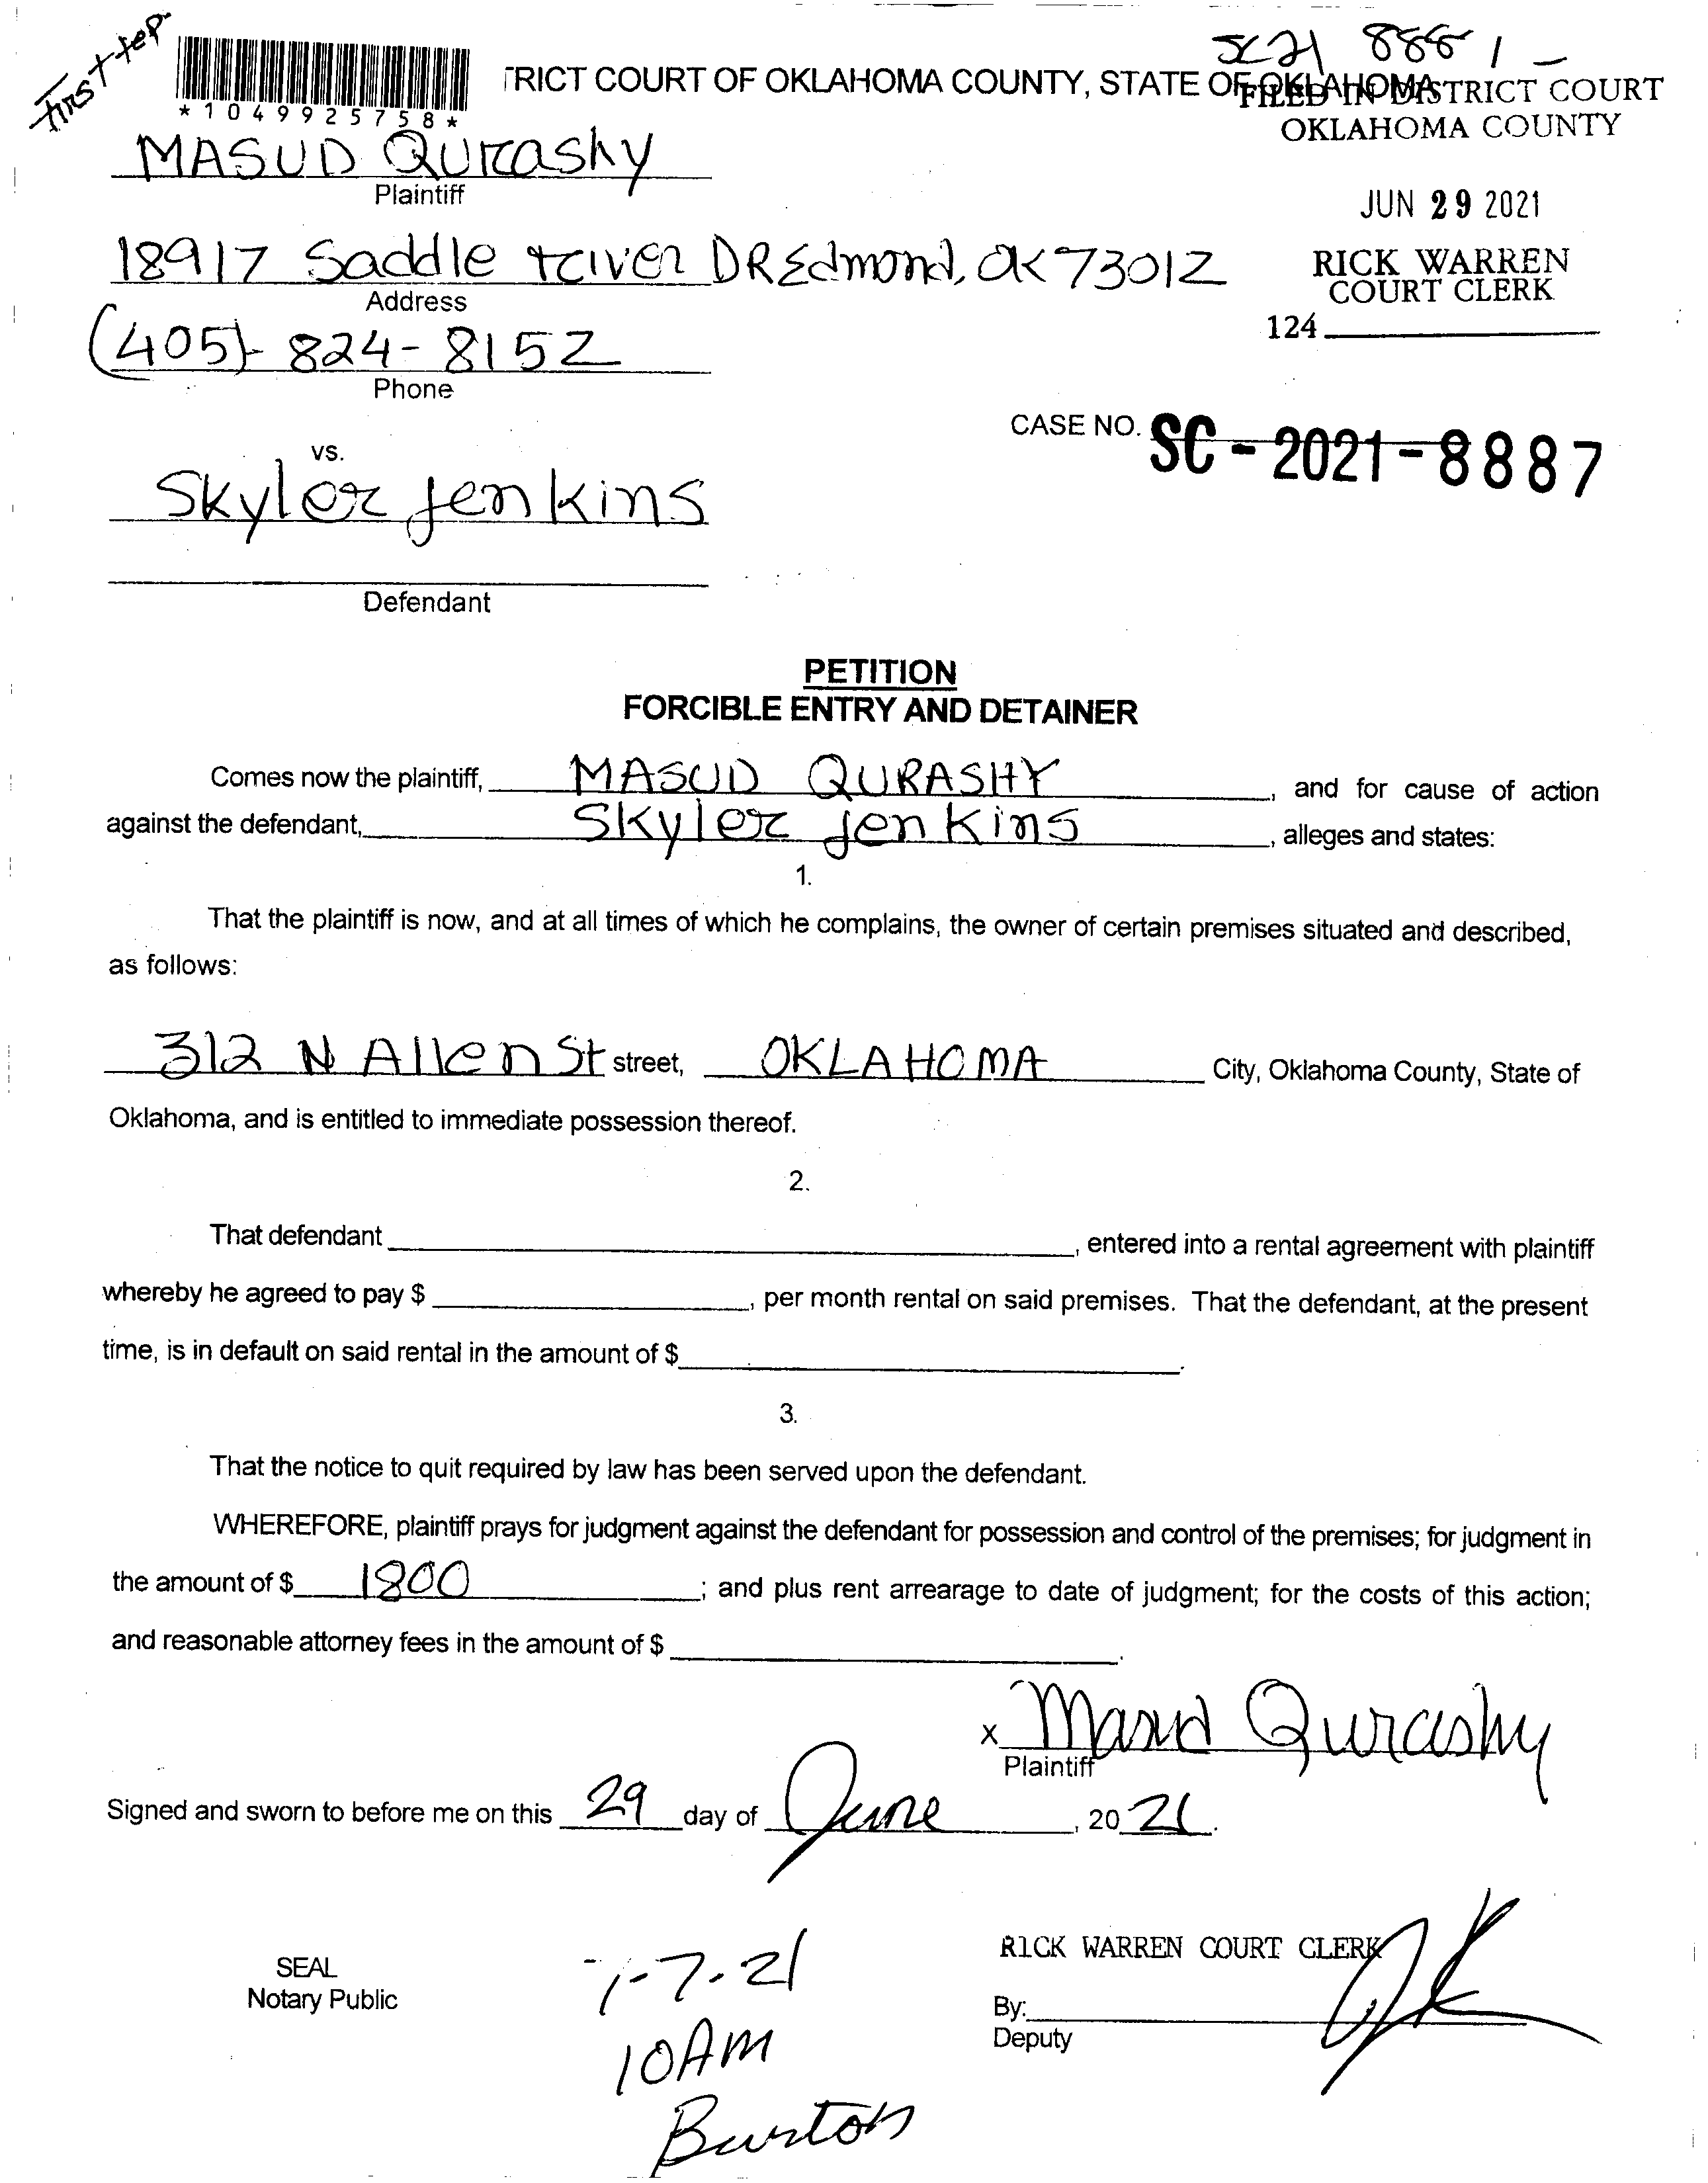 *1049925758*
TRICT COURT OF OKLAHOMA COUNTY, STATE OF OKLAHOMA
FILED IN DISTRICT COURT
OKLAHOMA COUNTY
MASUD QURASHY
Plaintiff
JUN 29 2021
18917 Saddle River DR Edmond, OK 73012
Address
RICK WARREN
COURT CLERK
124
(405)-824-8152
Phone
CASE NO. SC-2021-8887
vs.
Skyler Jenkins
Defendant
PETITION
FORCIBLE ENTRY AND DETAINER
Comes now the plaintiff, MASUD QURASHY, and for cause of action
against the defendant, Skyler Jenkins, alleges and states:
1.
That the plaintiff is now, and at all times of which he complains, the owner of certain premises situated and described,
as follows:
312 N Allen St street, OKLAHOMA City, Oklahoma County, State of
Oklahoma, and is entitled to immediate possession thereof.
2.
That defendant , entered into a rental agreement with plaintiff
whereby he agreed to pay $ , per month rental on said premises. That the defendant, at the present
time, is in default on said rental in the amount of $ .
3.
That the notice to quit required by law has been served upon the defendant.
WHEREFORE, plaintiff prays for judgment against the defendant for possession and control of the premises; for judgment in
the amount of $ 1800 ; and plus rent arrearage to date of judgment; for the costs of this action;
and reasonable attorney fees in the amount of $ .
x Masud Qurashy
Plaintiff
Signed and sworn to before me on this 29 day of June, 20 21.
SEAL
Notary Public
7-7-21
10AM
Burton
RICK WARREN COURT CLERK
By:
Deputy